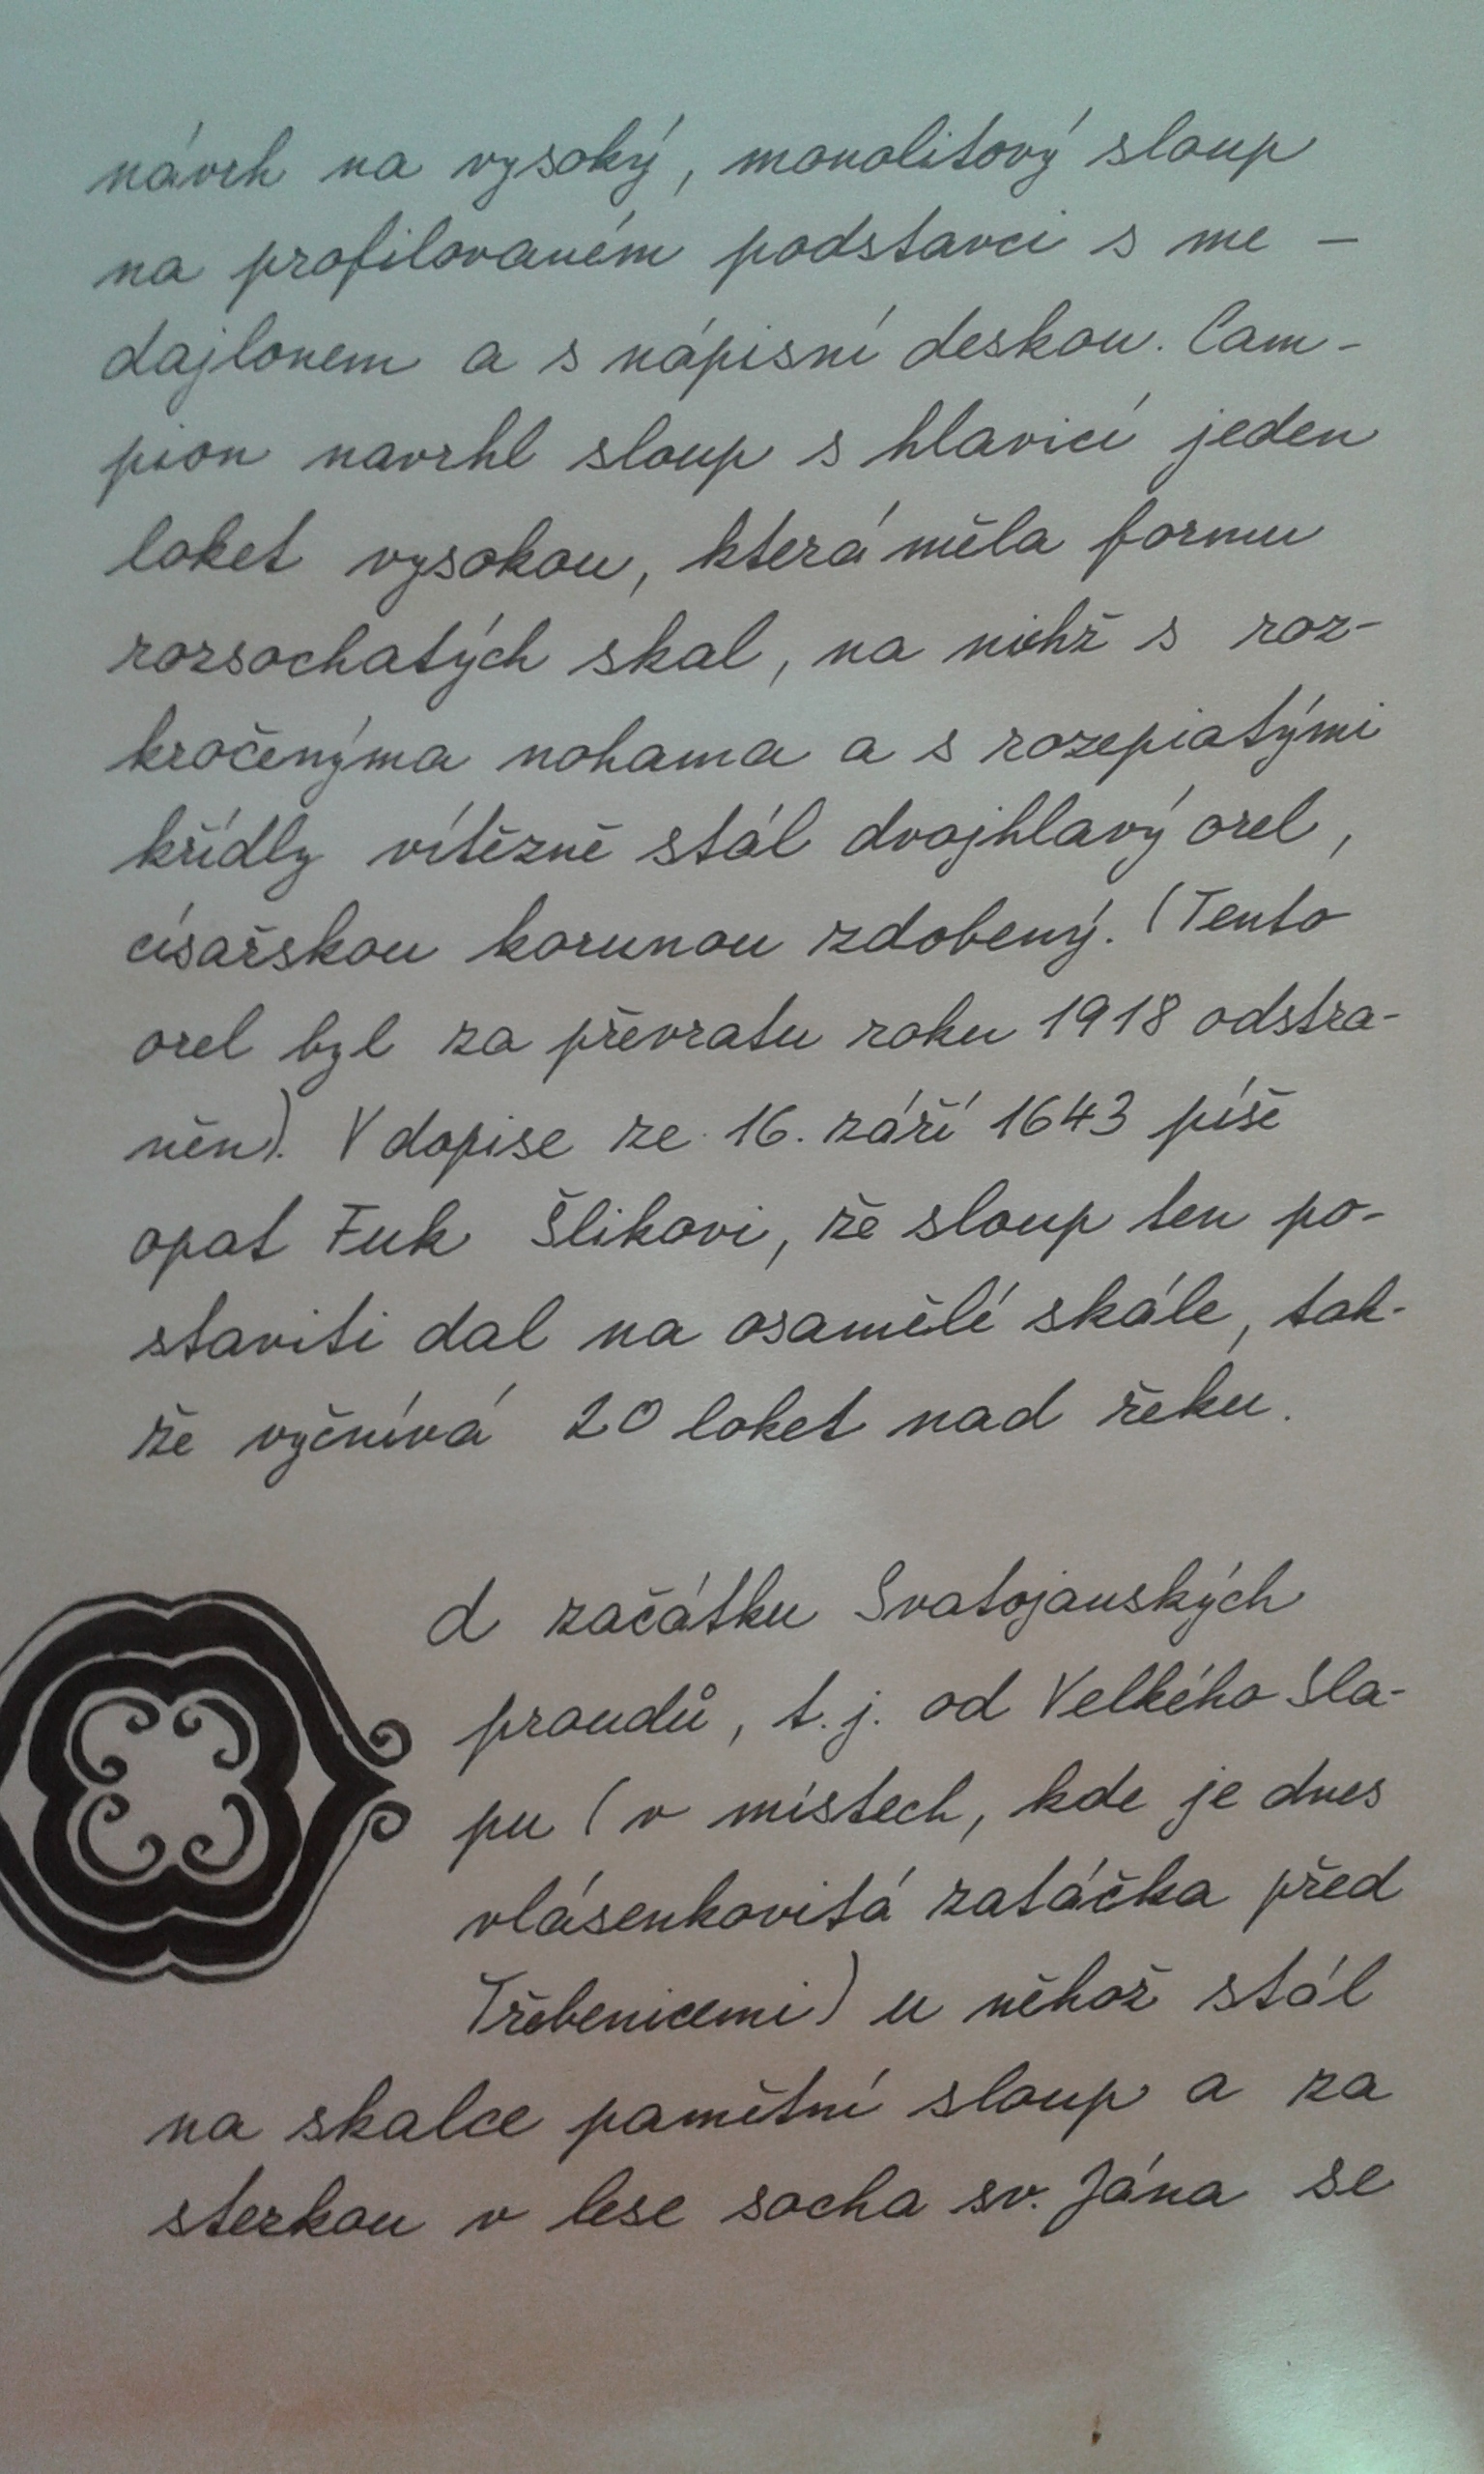 návrh na vysoký, monolitový sloup
na profilovaném podstavci s me-
dajlonem a s nápisní deskou. Cam-
pion navrhl sloup s hlavicí jeden
loket vysokou, která měla formu
rozsochatých skal, na nichž s roz-
kročenýma nohama a s rozepiatými
křídly vítězně stál dvojhlavý orel,
císařskou korunou zdobený. (Tento
orel byl za převratu roku 1918 odstra-
něn). V dopise ze 16. září 1643 píše
opat Fuk Šlikovi, že sloup ten po-
staviti dal na osamělé skále, tak-
že vyčnívá 20 loket nad řeku.
Od začátku Svatojanských
proudů, t.j. od Velkého Sla-
pu (v místech, kde je dnes
vlásenkovitá zatáčka před
Třebenicemi) u něhož stál
na skalce pamětní sloup a za
sterkou v lese socha sv. Jána se